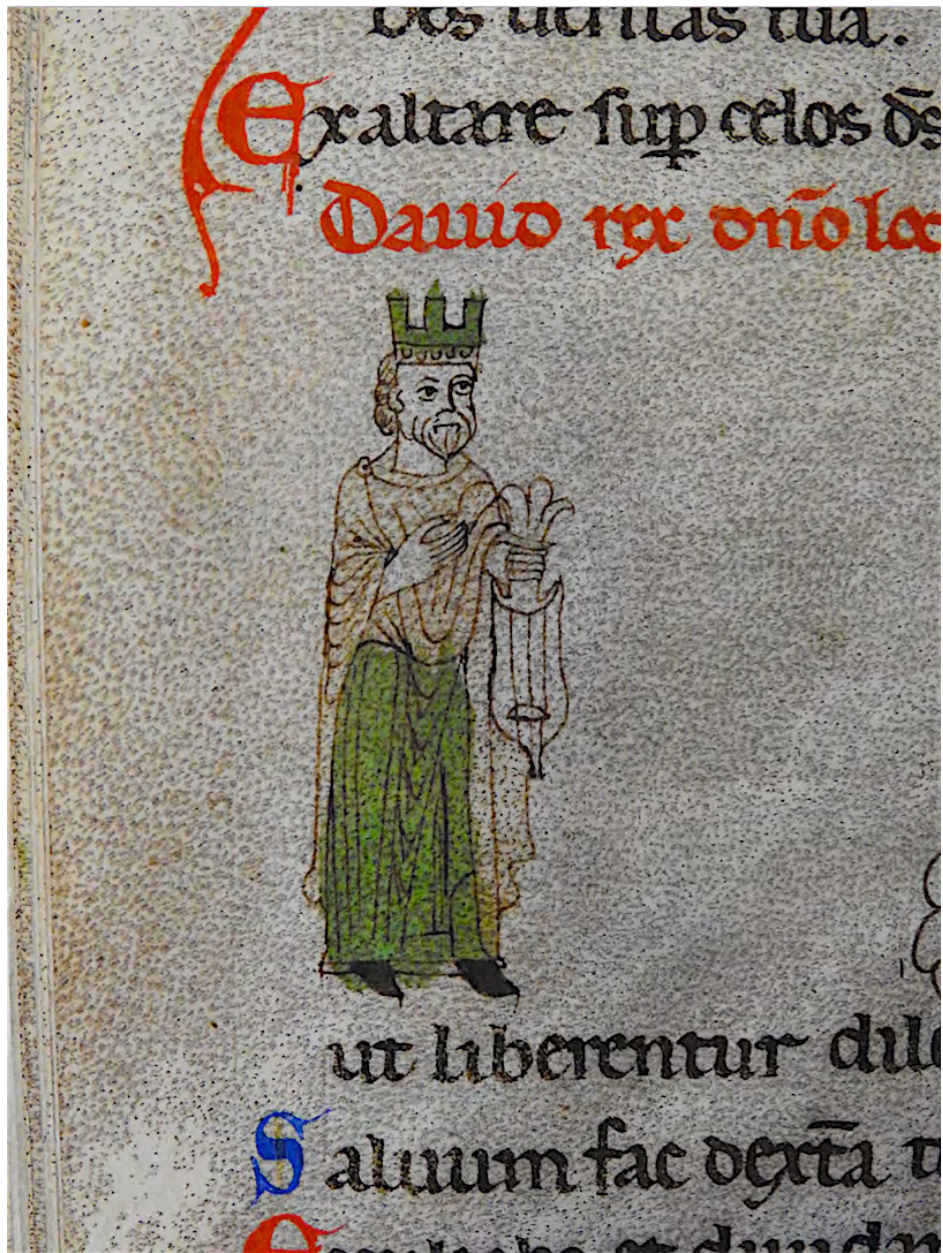 ueritas tua.
Exaltare sup̱ celos ds̄
Dauid rex dn̄o
ut liberentur
Saluum fac dext̄a